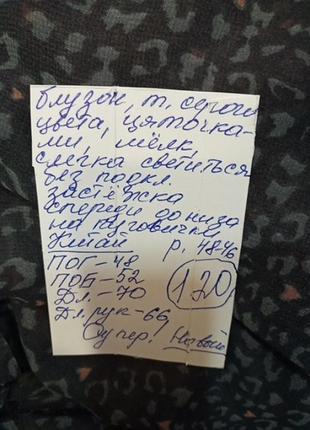 блузон, т. серого
цвета, цяточка-
ми, шёлк
слегка светиться
без подкл.
застёжка
спереди до низа
на пуговичко
Китай р. 48-46
ПОГ-48
ПОБ-52
Дл.-70 120
Дл. рук-66
Супер! Новое